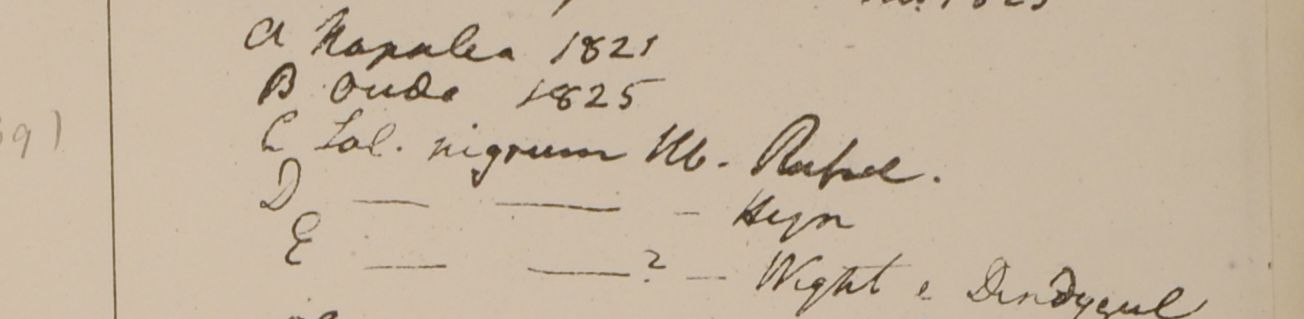 1823
A Napalea 1821
B Oude 1825
C Sol. nigrum Hb.
D — — — Heyn
E — — ? — Wight e Dindygul